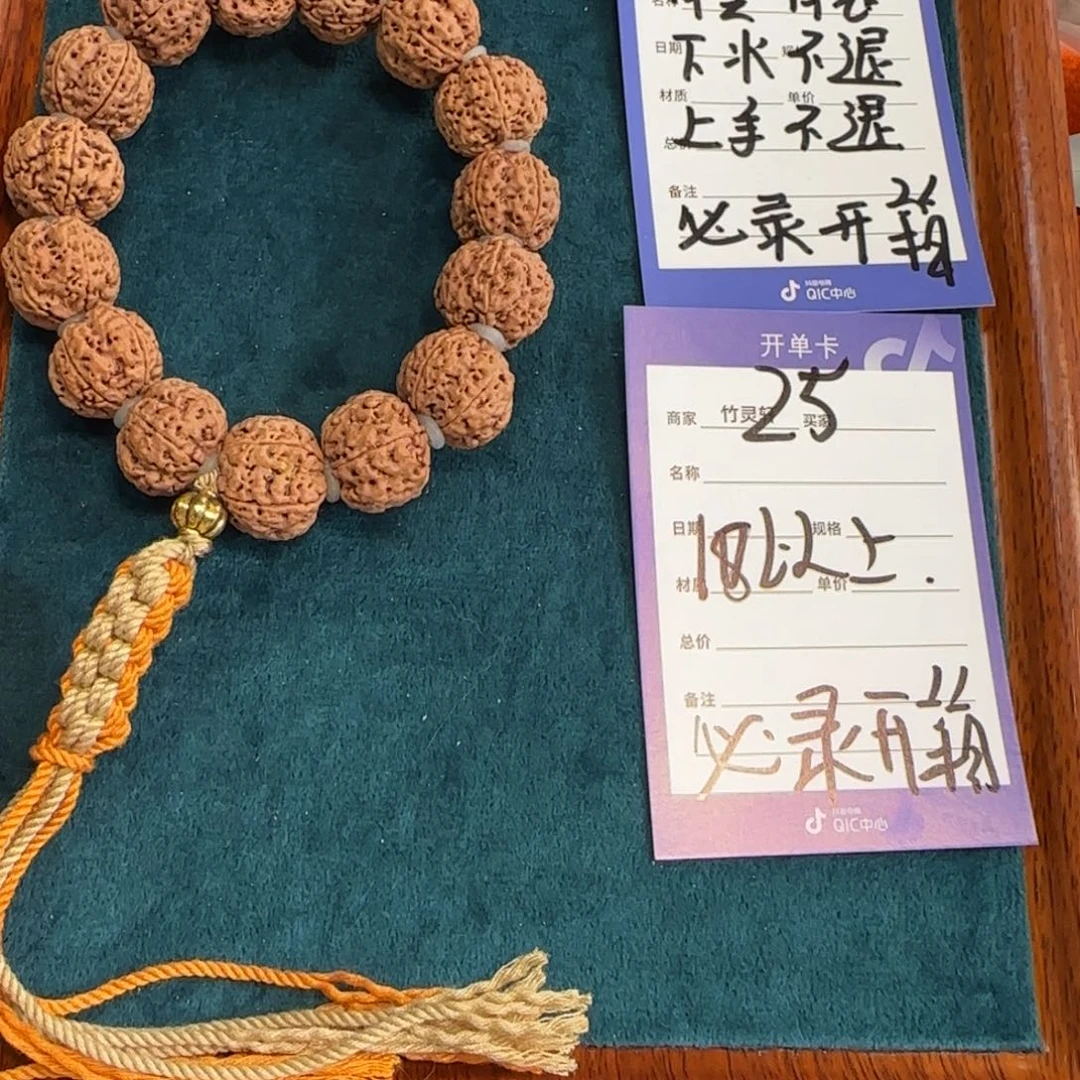 名称
日期 规格
下水不退
材质 单价
上手不退
备注
必录开箱
抖音电商
QIC中心
开单卡
25
商家 竹灵轩 买家
名称
日期 规格
18以上.
材质 单价
总价
备注
必录开箱
抖音电商
QIC中心